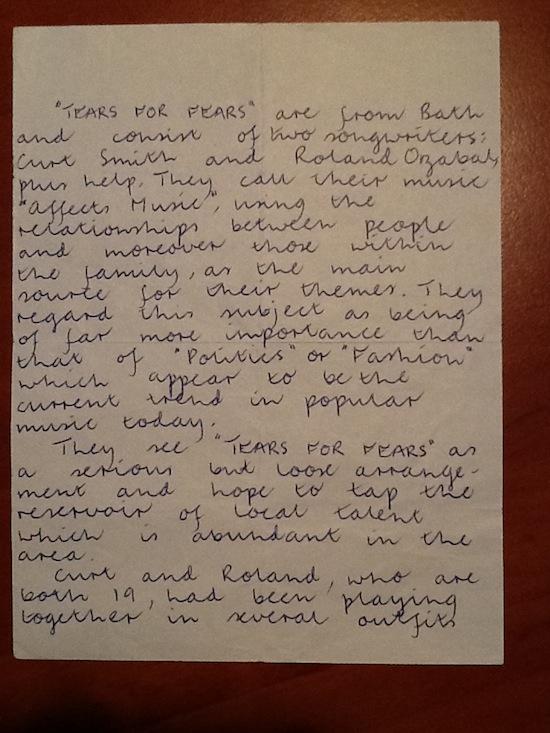 "TEARS FOR FEARS" are from Bath
and consist of two songwriters:
Curt Smith and Roland Orzabal,
plus help. They call their music
"Affects Music", using the
relationships between people
and moreover those within
the family, as the main
source for their themes. They
regard this subject as being
of far more importance than
that of "Politics" or "Fashion"
which appear to be the
current trend in popular
music today.
They see "TEARS FOR FEARS" as
a serious but loose arrange-
ment and hope to tap the
reservoir of local talent
which is abundant in the
area.
Curt and Roland, who are
both 19, had been playing
together in several outfits